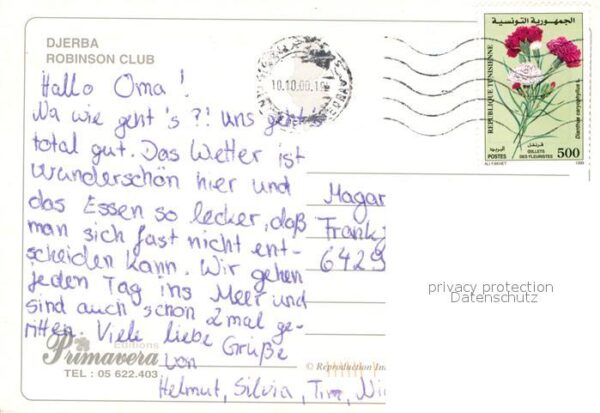 DJERBA
ROBINSON CLUB
Hallo Oma!
Na wie geht's?! uns geht's
total gut. Das Wetter ist
wunderschön hier und
das Essen so lecker, daß
man sich fast nicht ent-
scheiden kann. Wir gehen
jeden Tag ins Meer und
sind auch schon 2mal ge-
ritten. Viele liebe Grüße
von
Helmut, Silvia, Tim,
Editions
Primavera
TEL : 05 622.403
© Reproduction
10.10.00
الجمهورية التونسية
REPUBLIQUE TUNISIENNE
Dianthus caryophyllus L.
قرنفل
OEILLETS
DES FLEURISTES
البريد
POSTES
500
1999
Magar
Frank
6429
privacy protection
Datenschutz